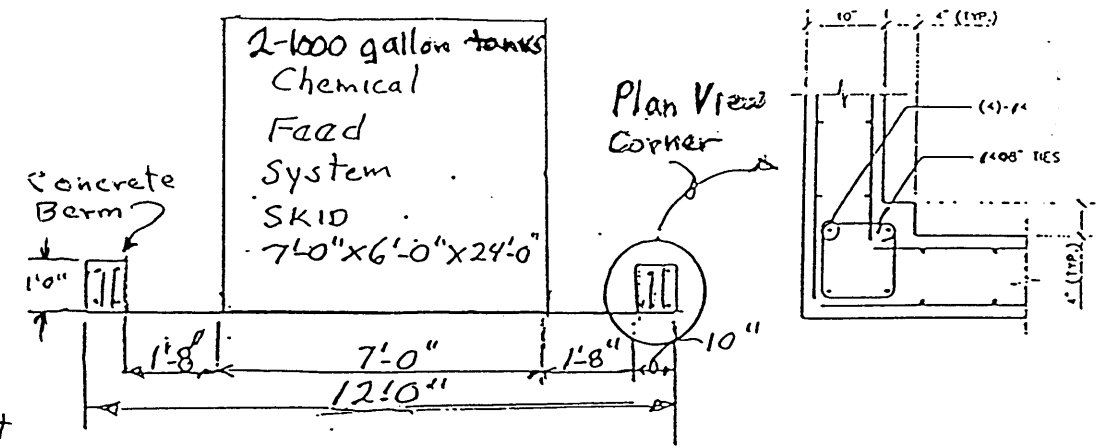 2-1000 gallon tanks
Chemical
Feed
System
SKID
7'-0"X6'-0"X24'-0"
Concrete
Berm
1'0"
1'-8"
7'-0"
1'-8"
10"
12'0"
Plan View
Corner
10"
4" (TYP.)
TIES
4" (TYP.)